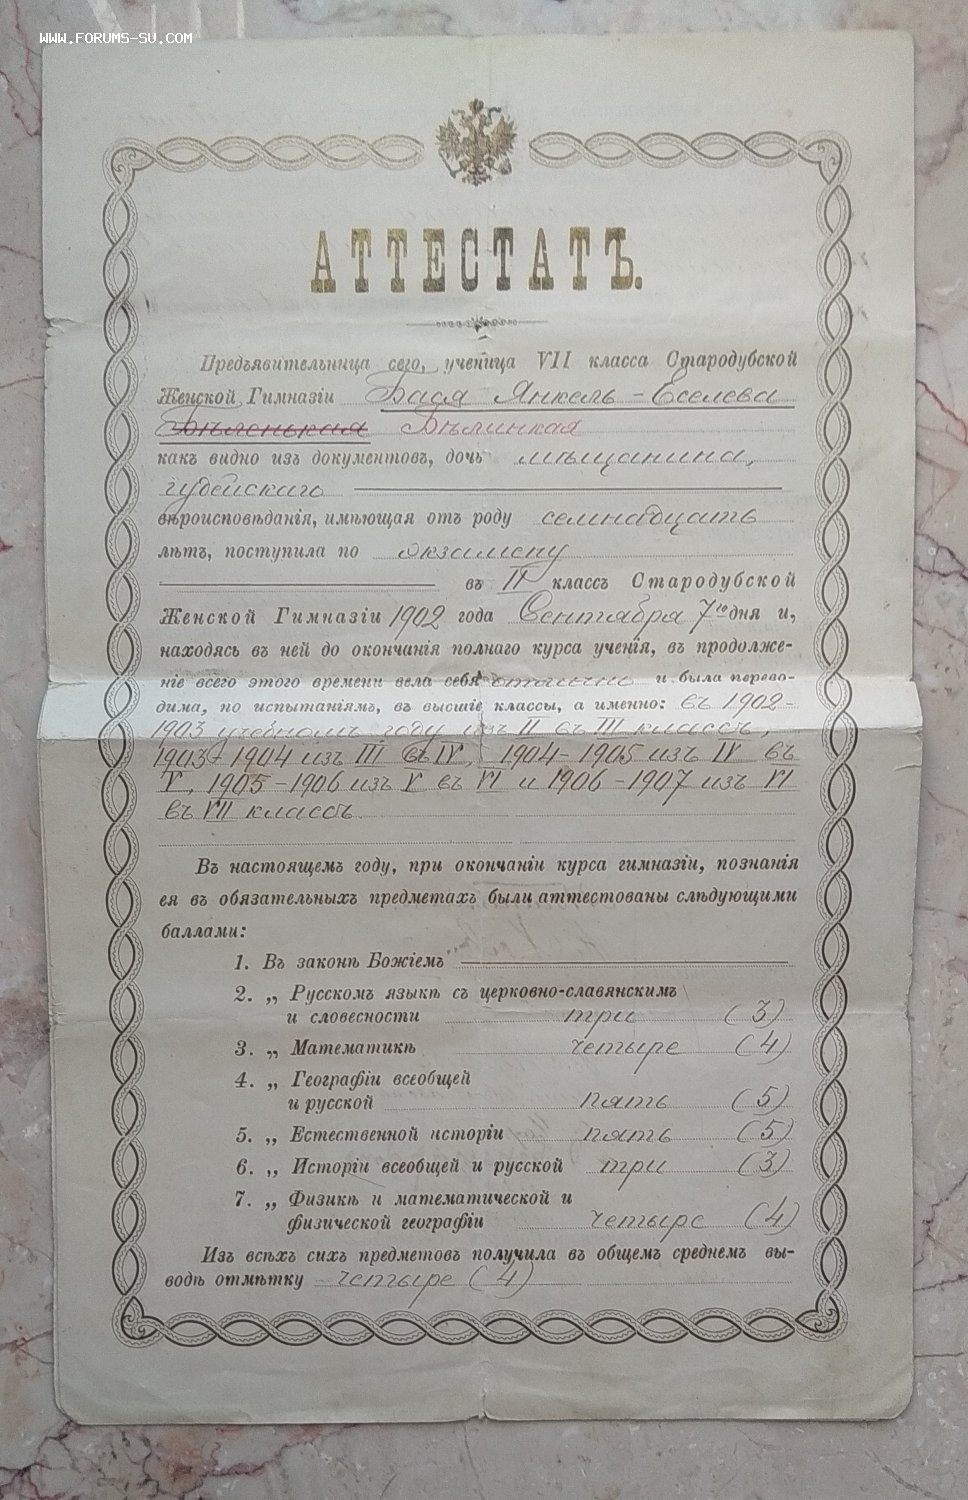 WWW.FORUMS-SU.COM
АТТЕСТАТЪ.
Предъявительница сего, ученица VII класса Стародубской
Женской Гимназіи Бася Янкель-Еселева
Бѣленькая Бѣлинкая
какъ видно изъ документовъ, дочь мѣщанина,
іудейскаго
вѣроисповѣданія, имѣющая отъ роду семнадцать
лѣтъ, поступила по экзамену
въ II классъ Стародубской
Женской Гимназіи 1902 года Сентября 7го дня и,
находясь въ ней до окончанія полнаго курса ученія, въ продолже-
ніе всего этого времени вела себя отлично и была перево-
дима, по испытаніямъ, въ высшіе классы, а именно: въ 1902-
1903 учебномъ году изъ II въ III классъ,
1903-1904 изъ III въ IV, 1904-1905 изъ IV въ
V, 1905-1906 изъ V въ VI и 1906-1907 изъ VI
въ VII классъ.
Въ настоящемъ году, при окончаніи курса гимназіи, познанія
ея въ обязательныхъ предметахъ были аттестованы слѣдующими
баллами:
1. Въ законѣ Божіемъ
2. „ Русскомъ языкѣ съ церковно-славянскимъ
и словесности три (3)
3. „ Математикѣ четыре (4)
4. „ Географіи всеобщей
и русской пять (5)
5. „ Естественной исторіи пять (5)
6. „ Исторіи всеобщей и русской три (3)
7. „ Физикѣ и математической и
физической географіи четыре (4)
Изъ всѣхъ сихъ предметовъ получила въ общемъ среднемъ вы-
водѣ отмѣтку четыре (4)